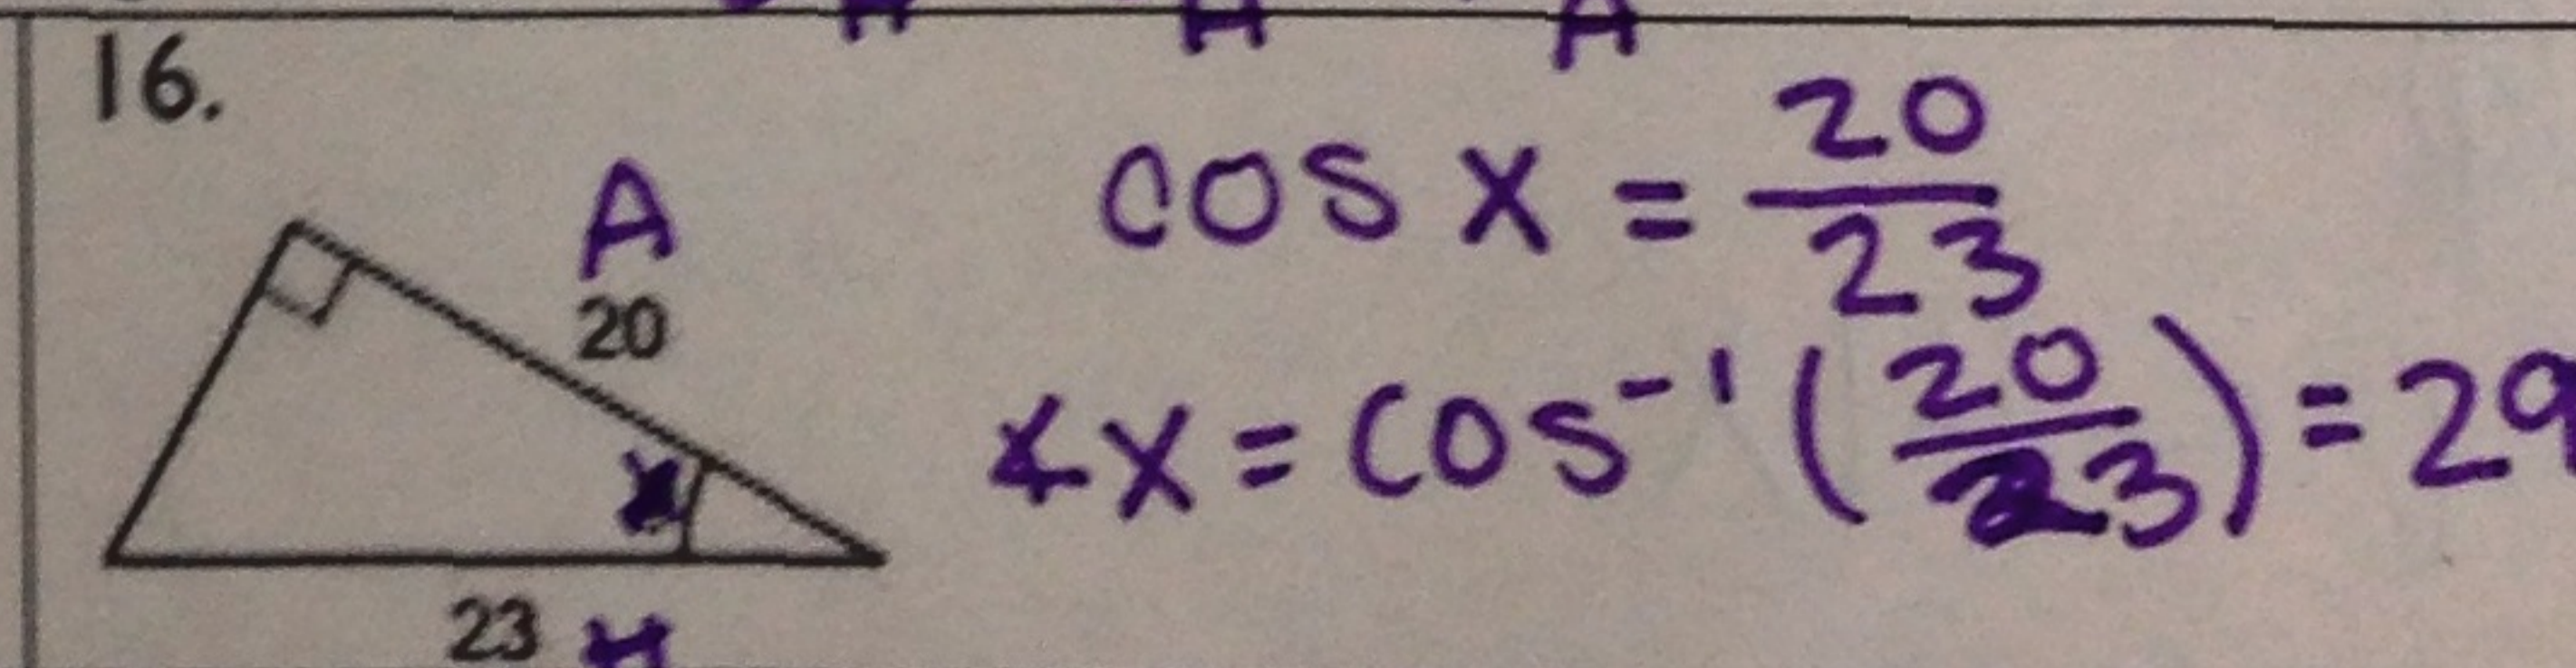 16.
A
20
x
23 H
cos x = 20/23
∡x = cos⁻¹(20/23) = 29